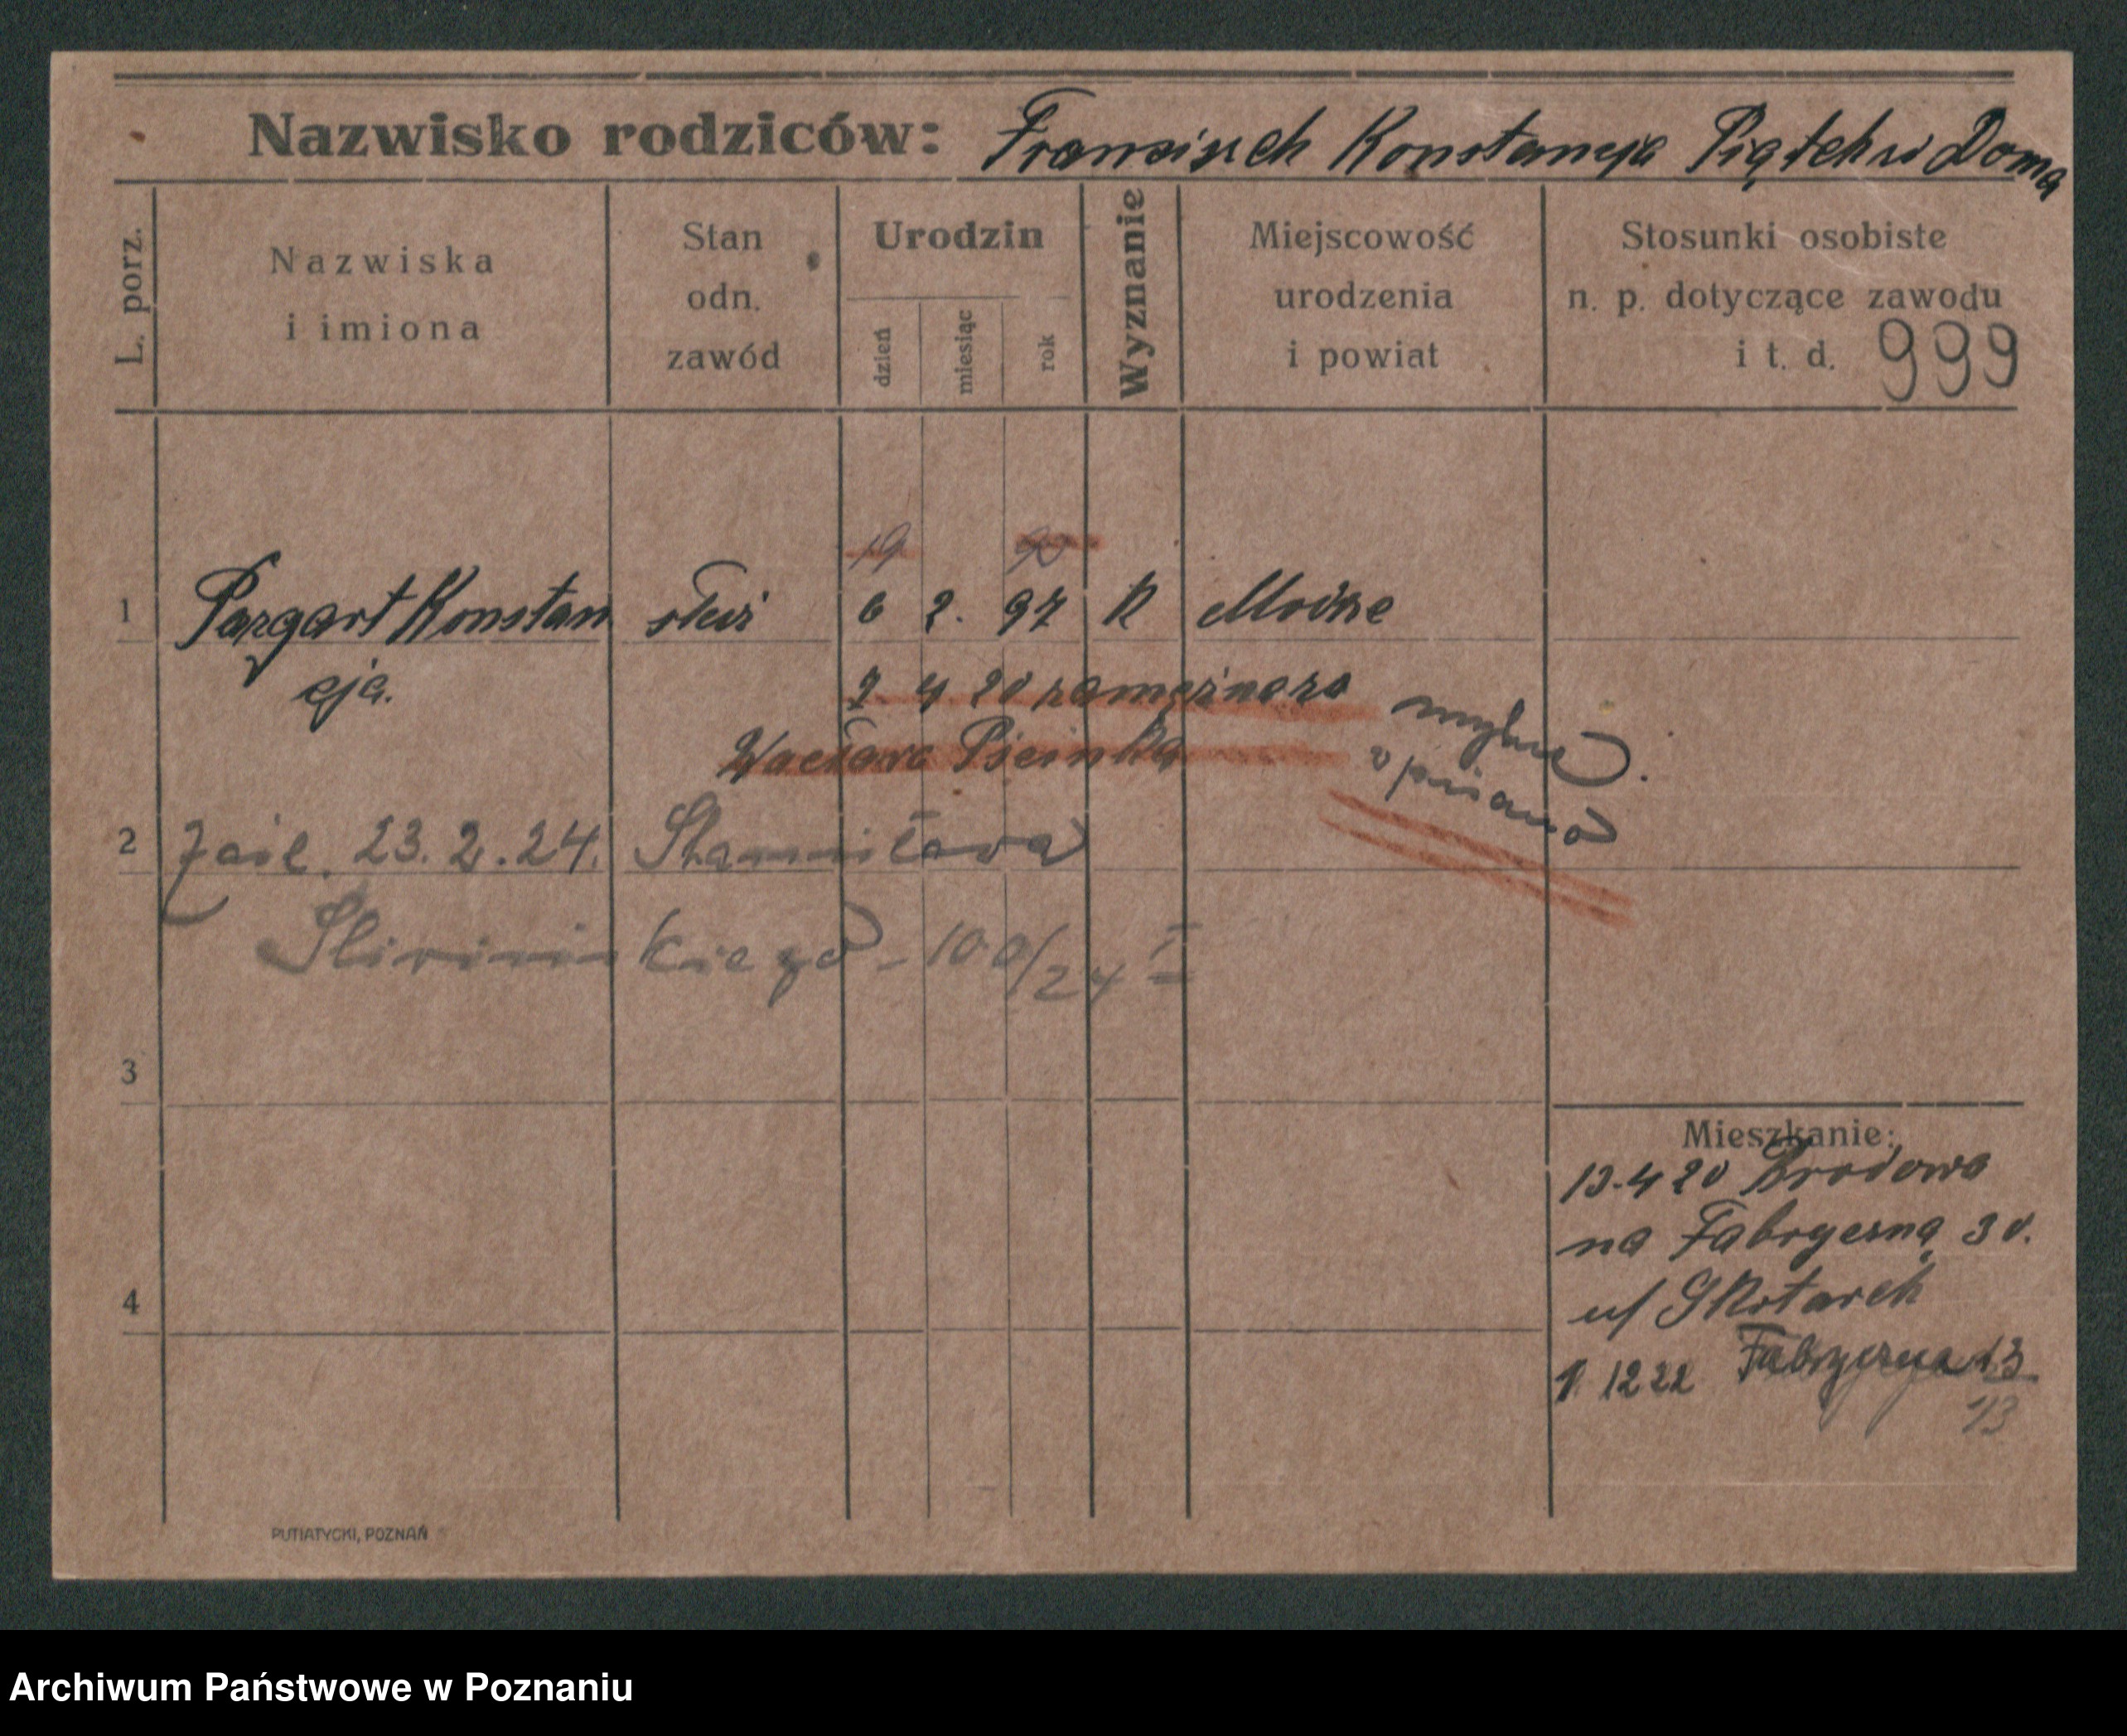 Nazwisko rodziców: Franciszek Konstancja Piątek w Doma
L. porz.
Nazwiska
i imiona
Stan
odn.
zawód
Urodzin
dzień
miesiąc
rok
Wyznanie
Miejscowość
urodzenia
i powiat
Stosunki osobiste
n. p. dotyczące zawodu
i t. d. 999
19 90
1 Pazgart Konstan służ 6 2. 97 K
cja. 7 4 20 zamężna za
Wacława mylnie
wpisano
2 23.2.24. Stanisława
Śliwińskiego - 100/24 I
3
Mieszkanie:
13.4 20
na Fabryczną 30.
4 u/
1. 12 22 Fabryczna 13
13
PUTIATYCKI, POZNAŃ
Archiwum Państwowe w Poznaniu